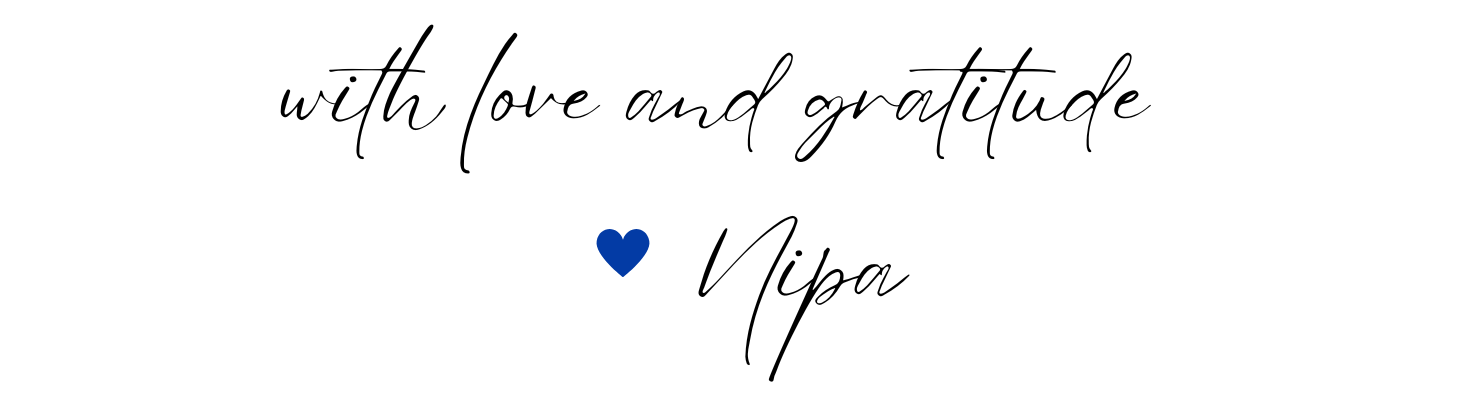 with love and gratitude
💙 Nipa